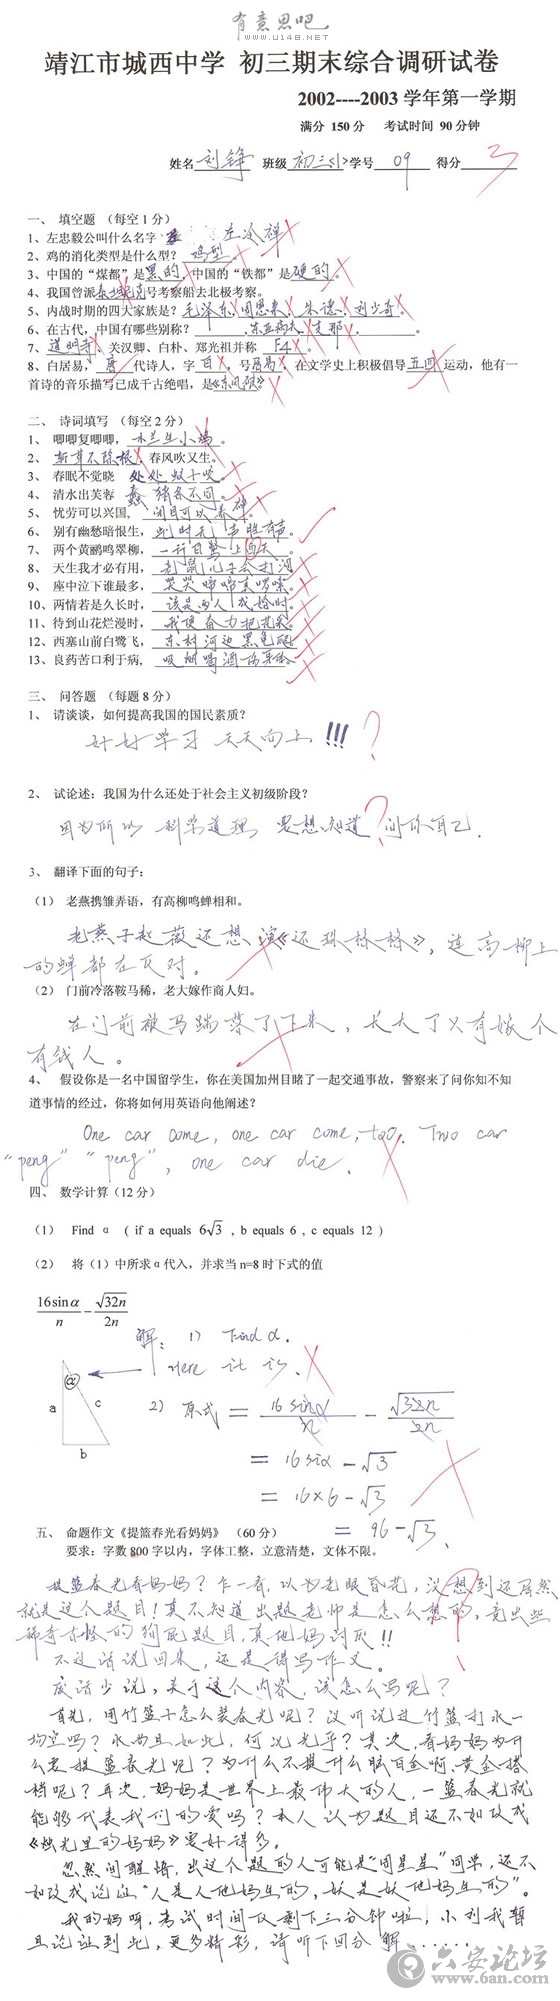 有意思吧
WWW.U148.NET
靖江市城西中学 初三期末综合调研试卷
2002----2003 学年第一学期
满分 150分 考试时间 90分钟
姓名 刘铮 班级 初三<1> 学号 09 得分 3
一、 填空题 (每空1分)
1、左忠毅公叫什么名字 左冷禅
2、鸡的消化类型是什么型? 鸡型。
3、中国的“煤都”是黑的,中国的“铁都”是硬的。
4、我国曾派泰坦尼克号考察船去北极考察。
5、内战时期的四大家族是?毛泽东、周恩来、朱德、刘少奇。
6、在古代,中国有哪些别称? 、东亚病夫、支那、 。
7、道明寺、关汉卿、白朴、郑光祖并称 F4 。
8、白居易, 唐 代诗人,字 白 ,号居易,在文学史上积极倡导五四运动,他有一
首诗的音乐描写已成千古绝唱,是《东风破》
二、 诗词填写 (每空2分)
1、 唧唧复唧唧,木兰生小鸡。
2、 斩草不除根,春风吹又生。
3、 春眠不觉晓 处处蚊子咬。
4、 清水出芙蓉
5、 忧劳可以兴国, 闭目可以养神。
6、 别有幽愁暗恨生,此时无声胜有声。
7、 两个黄鹂鸣翠柳,一行白鹭上西天。
8、 天生我才必有用,老鼠儿子会打洞。
9、 座中泣下谁最多,哭哭啼啼真啰嗦。
10、两情若是久长时,该是两人成婚时。
11、待到山花烂漫时,我便奋力把花采。
12、西塞山前白鹭飞,东村河边黑龟爬。
13、良药苦口利于病,
三、 问答题 (每题8分)
1、 请谈谈,如何提高我国的国民素质?
好好学习 天天向上 !!! ?
2、 试论述:我国为什么还处于社会主义初级阶段?
因为所以 科学道理 要想知道 问你自己. ?
3、 翻译下面的句子:
(1) 老燕携雏弄语,有高柳鸣蝉相和。
老燕子赵薇还想演《还珠格格》,连高柳上
的蝉都在反对。
(2) 门前冷落鞍马稀,老大嫁作商人妇。
在门前被马踹落了下来,长大了又有嫁个
有钱人。
4、 假设你是一名中国留学生,你在美国加州目睹了一起交通事故,警察来了问你知不知
道事情的经过,你将如何用英语向他阐述?
One car come, one car come, too. Two car
“peng” “peng”, one car die.
四、 数学计算(12分)
(1) Find α ( if a equals 6√3 , b equals 6 , c equals 12 )
(2) 将(1)中所求α代入,并求当n=8时下式的值
16sinα/n − √32n/2n
解: 1) Find α.
α Here it is.
a c
b
2) 原式 = 16sinα/n − √32n/2n
= 16siα − √3
= 16×6 − √3
= 96 − √3.
五、 命题作文《提篮春光看妈妈》 (60分)
要求:字数800字以内,字体工整,立意清楚,文体不限。
提篮春光看妈妈?乍一看,以为老眼昏花,没想到还居然
就是这个题目!真不知道出题老师是怎么想的,竟出些
稀奇古怪的狗屁题目,真他妈讨厌!!
不过话说回来,还是得写作文。
废话少说,关于这个内容,该怎么写呢?
首先,用竹篮子怎么装春光呢?没听说过竹篮打水一
场空吗?水尚且如此,何况光乎?其次,看妈妈为什
么要提篮春光呢?为什么不提什么脑白金啊,黄金搭
档呢?再次,妈妈是世界上最伟大的人,一篮春光就
能够代表我们的爱吗?本人认为题目还不如改成
《烛光里的妈妈》要好得多。
忽然间醒悟,出这个题的人可能是“周星星”同学,还不
如改成论证“人是人他妈生的,妖是妖他妈生的”。
我的妈呀,考试时间仅剩下三分钟啦,小刘我暂
且论证到此,更多精彩,请听下回分解......
六安论坛
www.6an.com